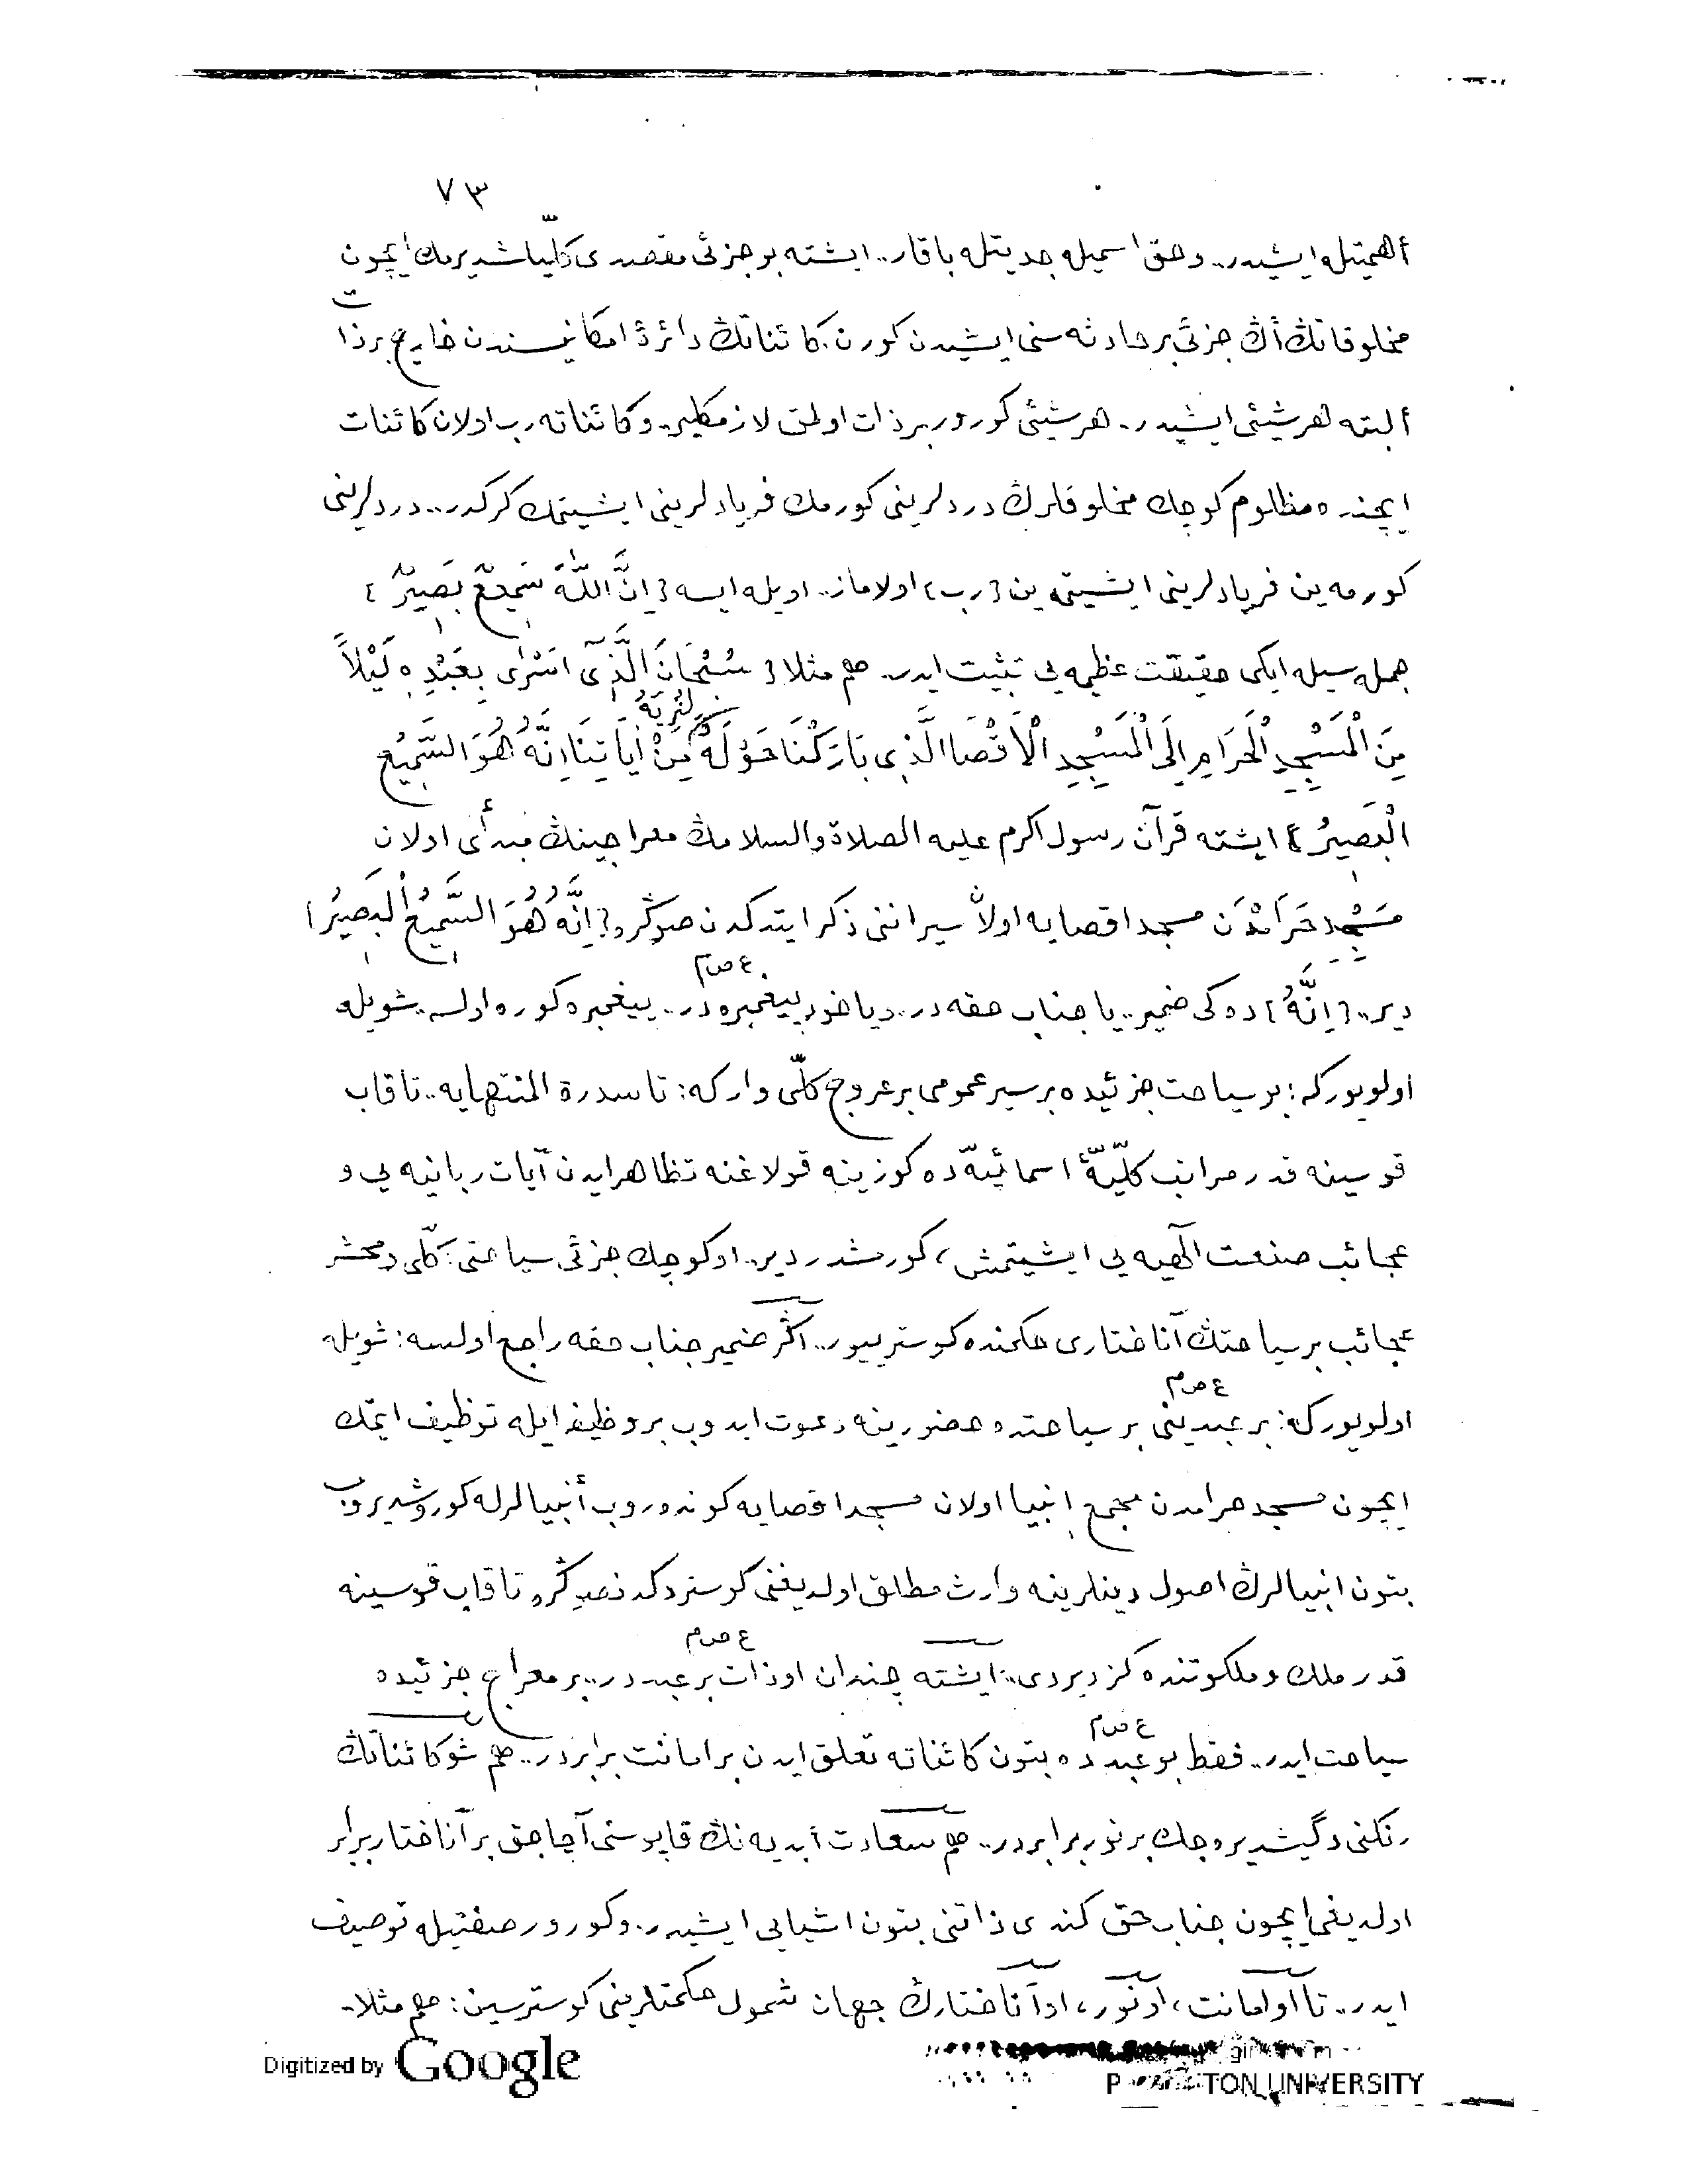 ٧٣
أهميتله ايشيدر.. وحق اسميله جديتله باقار.. ايشته بو جزئى مقصدى كلّيلشديرمك ايچون
مخلوقاتڭ أڭ جزئى بر حادثه سنى ايشيدن كورن. كائناتڭ دائرۀ امكانيسندن خارج بر ذات
ألبته هر شيئى ايشيدر.. هر شيئى كورور بر ذات اولمق لازمكلير.. و كائناته رب اولان كائنات
ايچنده مظلوم كوچك مخلوقلرڭ دردلرينى كورمك فريادلرينى ايشيتمك كركدر.. دردلرينى
كورمه ين فريادلرينى ايشيتمه ين {رب} اولاماز.. اويله ايسه {اِنَّ اللّٰهَ سَمِيعٌ بَصِيرٌ}
جمله سيله ايكى حقيقت عظيمه يى تثبيت ايدر.. هم مثلا {سُبْحَانَ الَّذِٓى اَسْرٰى بِعَبْدِهِ لَيْلاً
مِنَ الْمَسْجِدِ الْحَرَامِ اِلَى الْمَسْجِدِ الْاَقْصَا الَّذِى بَارَكْنَا حَوْلَهُ لِنُرِيَهُ مِنْ اٰيَاتِنَا اِنَّهُ هُوَ السَّمِيعُ
الْبَصِيرُ} ايشته قرآن رسول اكرم عليه الصلاة والسلامڭ معراجينڭ مبدأى اولان
مَسْجِدِ حَرَامْدَن مسجد اقصايه اولان سيراننى ذكر ايتدكدن صوڭره {اِنَّهُ هُوَ السَّمِيعُ الْبَصِيرُ}
دير.. {اِنَّهُ} ده كى ضمير.. يا جناب حقه در.. وياخود پيغمبره ع ص م در.. پيغمبره كوره اولسه.. شويله
اولويوركه: بو سياحت جزئيده بر سير عمومى بر عروج كلّى واركه: تا سدرة المنتهايه.. تا قاب
قوسينه قدر مراتب كلّيّۀ اسمائيّه ده كوزينه قولاغنه تظاهر ايدن آيات ربانيه يى و
عجائب صنعت الٓهيه يى ايشيتمش، كورمشدر دير.. او كوچك جزئى سياحتى: كلّى و محشر
عجائب بر سياحتڭ آناختارى حكمنده كوستريیور.. اگر ضمير جناب حقه راجع اولسه: شويله
اولويوركه: بر عبدينى ع ص م بر سياحتده حضورينه دعوت ايدوب بر وظيفه ايله توظيف ايتمك
ايچون مسجد حرامدن مجمع انبيا اولان مسجد اقصايه كوندوروب أنبيالرله كوروشديروب
بتون انبيالرڭ اصول دينلرينه وارث مطلق اولديغنى كوستردكدنصوڭره تا قاب قوسينه
قدر ملك و ملكوتنده كزديردى.. ايشته چندان او ذات بر عبد ع ص م در.. بر معراج جزئيده
سياحت ايدر.. فقط بو عبد ع ص م ده بتون كائناته تعلق ايدن بر امانت برابردر.. هم شو كائناتڭ
رنكنى دگيشديره جك بر نور برابردر.. هم سعادت أبديه نڭ قاپوسنى آچاجق بر آناختار برابر
اولديغى ايچون جناب حق كندى ذاتنى بتون اشيايى ايشيدر.. و كورور صفتيله توصيف
ايدر.. تا او امانت، او نور، او آناختارڭ جهان شمول حكمتلرينى كوسترسين: هم مثلا-
Digitized by Google
UNIVERSITY